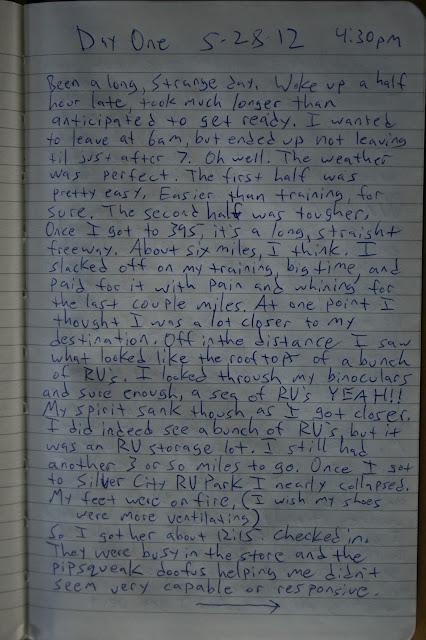 Day One 5-28-12 4:30pm
Been a long, strange day. Woke up a half
hour late, took much longer than
anticipated to get ready. I wanted
to leave at 6am, but ended up not leaving
til just after 7. Oh well. The weather
was perfect. The first half was
pretty easy. Easier than training, for
sure. The second half was tougher.
Once I got to 395, it's a long, straight
freeway. About six miles, I think. I
slacked off on my training, big time, and
paid for it with pain and whining for
the last couple miles. At one point I
thought I was a lot closer to my
destination. Off in the distance I saw
what looked like the rooftops of a bunch
of RV's. I looked through my binoculars
and sure enough, a sea of RV's YEAH!!!
My spirit sank though as I got closer.
I did indeed see a bunch of RV's, but it
was an RV storage lot. I still had
another 3 or so miles to go. Once I got
to Silver City RV Park I nearly collapsed.
My feet were on fire, (I wish my shoes
were more ventilating)
So I got her about 1215. Checked in.
They were busy in the store and the
pipsqueak doofus helping me didn't
seem very capable or responsive.